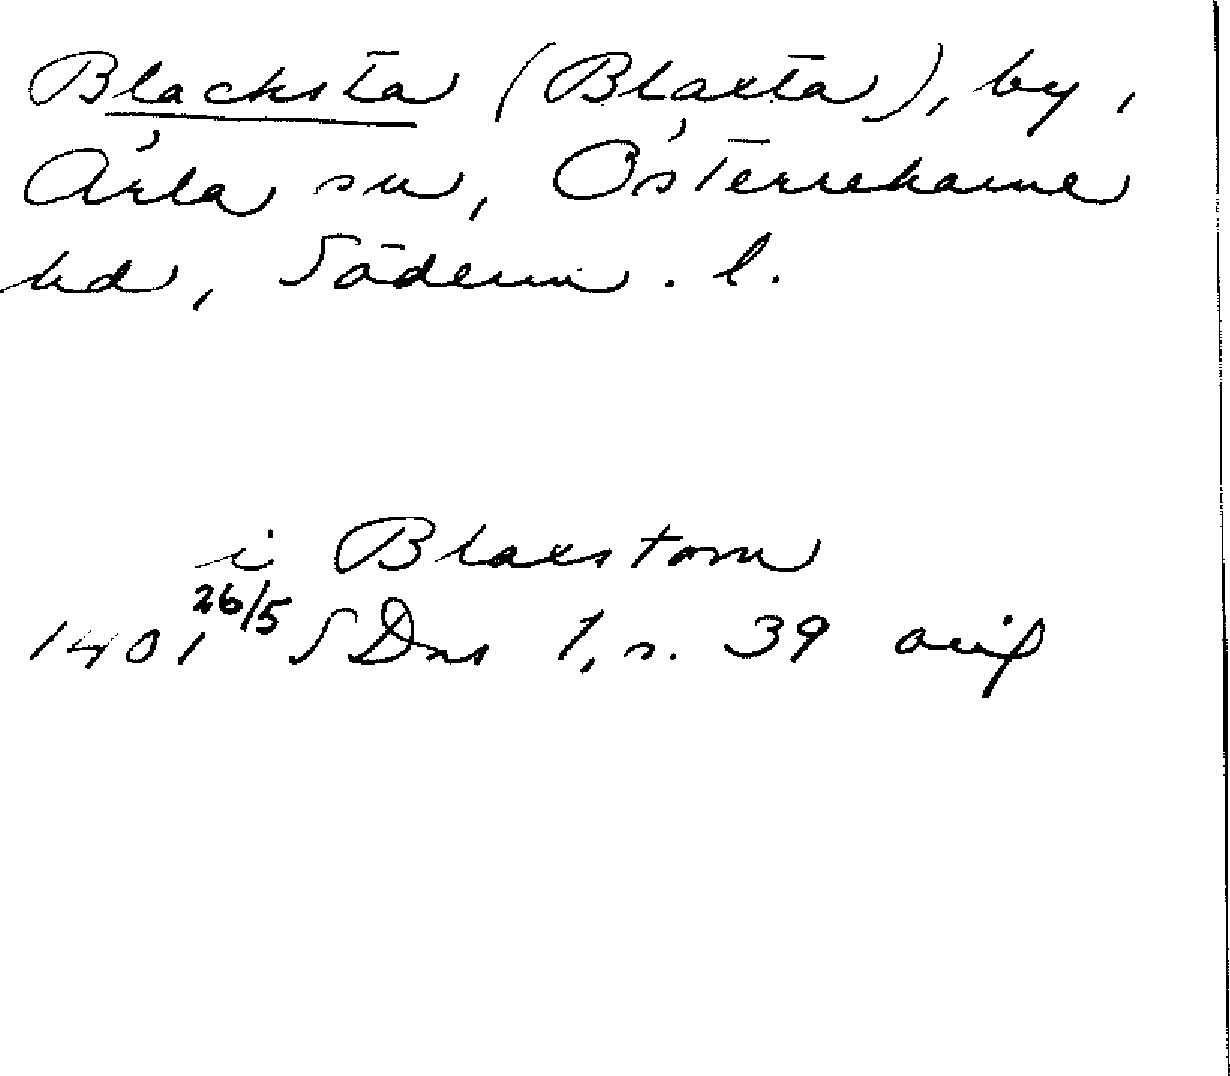 Blacksta (Blaxta), by,
Ärla sn, Österrekarne
hd, Söderm. l.
i Blaxstom
1401 26/5 SDns 1, s. 39 avip